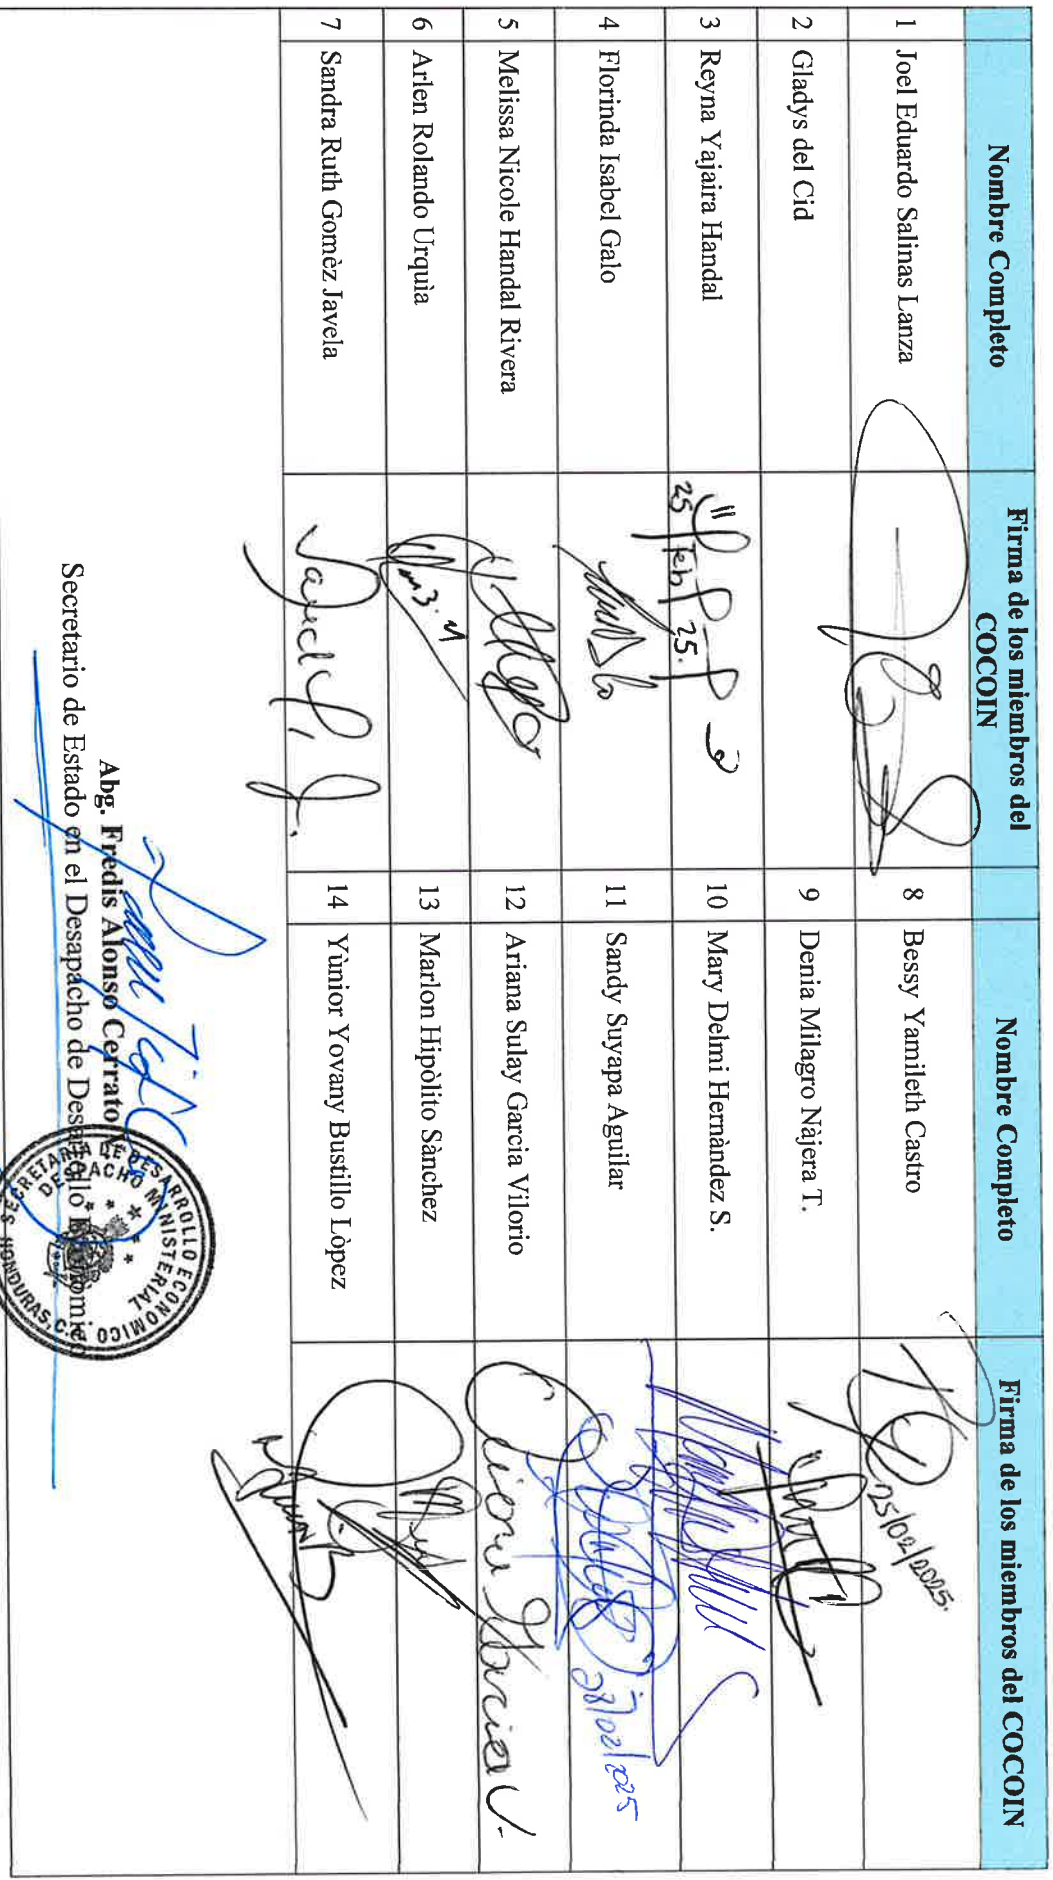 Nombre Completo
Firma de los miembros del
COCOIN
Nombre Completo
Firma de los miembros del COCOIN
1 Joel Eduardo Salinas Lanza
8 Bessy Yamileth Castro
25/02/2025.
2 Gladys del Cid
9 Denia Milagro Nàjera T.
3 Reyna Yajaira Handal
25 Feb 25.
10 Mary Delmi Hernàndez S.
4 Florinda Isabel Galo
11 Sandy Suyapa Aguilar
28/02/2025
5 Melissa Nicole Handal Rivera
12 Ariana Sulay Garcia Vilorio
6 Arlen Rolando Urquìa
13 Marlon Hipòlito Sànchez
7 Sandra Ruth Gomèz Javela
14 Yùnior Yovany Bustillo Lòpez
Abg. Fredis Alonso Cerrato
Secretario de Estado en el Desapacho de Desarrollo Económico
SECRETARIA DE DESARROLLO ECONOMICO
DESPACHO MINISTERIAL
HONDURAS, C.A.